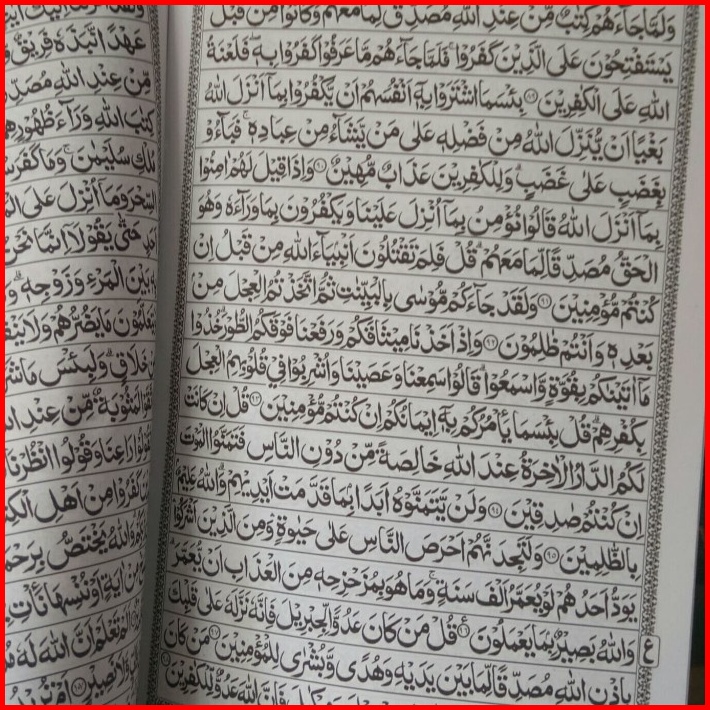 وَلَمَّا جَآءَهُمْ كِتٰبٌ مِّنْ عِنْدِ اللّٰهِ مُصَدِّقٌ لِّمَا مَعَهُمْ وَكَانُوْا مِنْ قَبْلُ
يَسْتَفْتِحُوْنَ عَلَى الَّذِيْنَ كَفَرُوْا ۚ فَلَمَّا جَآءَهُمْ مَّا عَرَفُوْا كَفَرُوْا بِهٖ ۫ فَلَعْنَةُ
اللّٰهِ عَلَى الْكٰفِرِيْنَ ﴿۸۹﴾ بِئْسَمَا اشْتَرَوْا بِهٖٓ اَنْفُسَهُمْ اَنْ يَّكْفُرُوْا بِمَآ اَنْزَلَ اللّٰهُ
بَغْيًا اَنْ يُّنَزِّلَ اللّٰهُ مِنْ فَضْلِهٖ عَلٰى مَنْ يَّشَآءُ مِنْ عِبَادِهٖ ۚ فَبَآءُوْ
بِغَضَبٍ عَلٰى غَضَبٍ ؕ وَلِلْكٰفِرِيْنَ عَذَابٌ مُّهِيْنٌ ﴿۹۰﴾ وَاِذَا قِيْلَ لَهُمْ اٰمِنُوْا
بِمَآ اَنْزَلَ اللّٰهُ قَالُوْا نُؤْمِنُ بِمَآ اُنْزِلَ عَلَيْنَا وَيَكْفُرُوْنَ بِمَا وَرَآءَهٗ وَهُوَ
الْحَقُّ مُصَدِّقًا لِّمَا مَعَهُمْ ؕ قُلْ فَلِمَ تَقْتُلُوْنَ اَنْۢبِيَآءَ اللّٰهِ مِنْ قَبْلُ اِنْ
كُنْتُمْ مُّؤْمِنِيْنَ ﴿۹۱﴾ وَلَقَدْ جَآءَكُمْ مُّوْسٰى بِالْبَيِّنٰتِ ثُمَّ اتَّخَذْتُمُ الْعِجْلَ مِنْۢ
بَعْدِهٖ وَاَنْتُمْ ظٰلِمُوْنَ ﴿۹۲﴾ وَاِذْ اَخَذْنَا مِيْثَاقَكُمْ وَرَفَعْنَا فَوْقَكُمُ الطُّوْرَ ؕ خُذُوْا
مَآ اٰتَيْنٰكُمْ بِقُوَّةٍ وَّاسْمَعُوْا ؕ قَالُوْا سَمِعْنَا وَعَصَيْنَا وَاُشْرِبُوْا فِيْ قُلُوْبِهِمُ الْعِجْلَ
بِكُفْرِهِمْ ؕ قُلْ بِئْسَمَا يَاْمُرُكُمْ بِهٖٓ اِيْمَانُكُمْ اِنْ كُنْتُمْ مُّؤْمِنِيْنَ ﴿۹۳﴾ قُلْ اِنْ كَانَتْ
لَكُمُ الدَّارُ الْاٰخِرَةُ عِنْدَ اللّٰهِ خَالِصَةً مِّنْ دُوْنِ النَّاسِ فَتَمَنَّوُا الْمَوْتَ
اِنْ كُنْتُمْ صٰدِقِيْنَ ﴿۹۴﴾ وَلَنْ يَّتَمَنَّوْهُ اَبَدًۢا بِمَا قَدَّمَتْ اَيْدِيْهِمْ ؕ وَاللّٰهُ عَلِيْمٌۢ
بِالظّٰلِمِيْنَ ﴿۹۵﴾ وَلَتَجِدَنَّهُمْ اَحْرَصَ النَّاسِ عَلٰى حَيٰوةٍ ۚ وَمِنَ الَّذِيْنَ اَشْرَكُوْا
يَوَدُّ اَحَدُهُمْ لَوْ يُعَمَّرُ اَلْفَ سَنَةٍ ۚ وَمَا هُوَ بِمُزَحْزِحِهٖ مِنَ الْعَذَابِ اَنْ يُّعَمَّرَ
وَاللّٰهُ بَصِيْرٌۢ بِمَا يَعْمَلُوْنَ ﴿۹۶﴾ قُلْ مَنْ كَانَ عَدُوًّا لِّجِبْرِيْلَ فَاِنَّهٗ نَزَّلَهٗ عَلٰى قَلْبِكَ
ع
بِاِذْنِ اللّٰهِ مُصَدِّقًا لِّمَا بَيْنَ يَدَيْهِ وَهُدًى وَّبُشْرٰى لِلْمُؤْمِنِيْنَ ﴿۹۷﴾ مَنْ كَانَ
فَاِنَّ اللّٰهَ عَدُوٌّ لِّلْكٰفِرِيْنَ
عَهْدًا نَّبَذَهٗ فَرِيْقٌ
مِّنْ عِنْدِ اللّٰهِ
كِتٰبَ اللّٰهِ وَرَآءَ ظُهُوْرِهِمْ
مُلْكِ سُلَيْمٰنَ ۚ وَمَا كَفَرَ
السِّحْرَ ۗ وَمَآ اُنْزِلَ عَلَى
حَتّٰى يَقُوْلَآ اِنَّمَا نَحْنُ
بَيْنَ الْمَرْءِ وَزَوْجِهٖ ؕ
مَا يَضُرُّهُمْ وَلَا
خَلَاقٍ ؕ وَلَبِئْسَ مَا
لَمَثُوْبَةٌ مِّنْ عِنْدِ
رَاعِنَا وَقُوْلُوا انْظُرْنَا
كَفَرُوْا مِنْ اَهْلِ
وَاللّٰهُ يَخْتَصُّ
مِنْ اٰيَةٍ اَوْ نُنْسِهَا
تَعْلَمْ اَنَّ اللّٰهَ لَهٗ